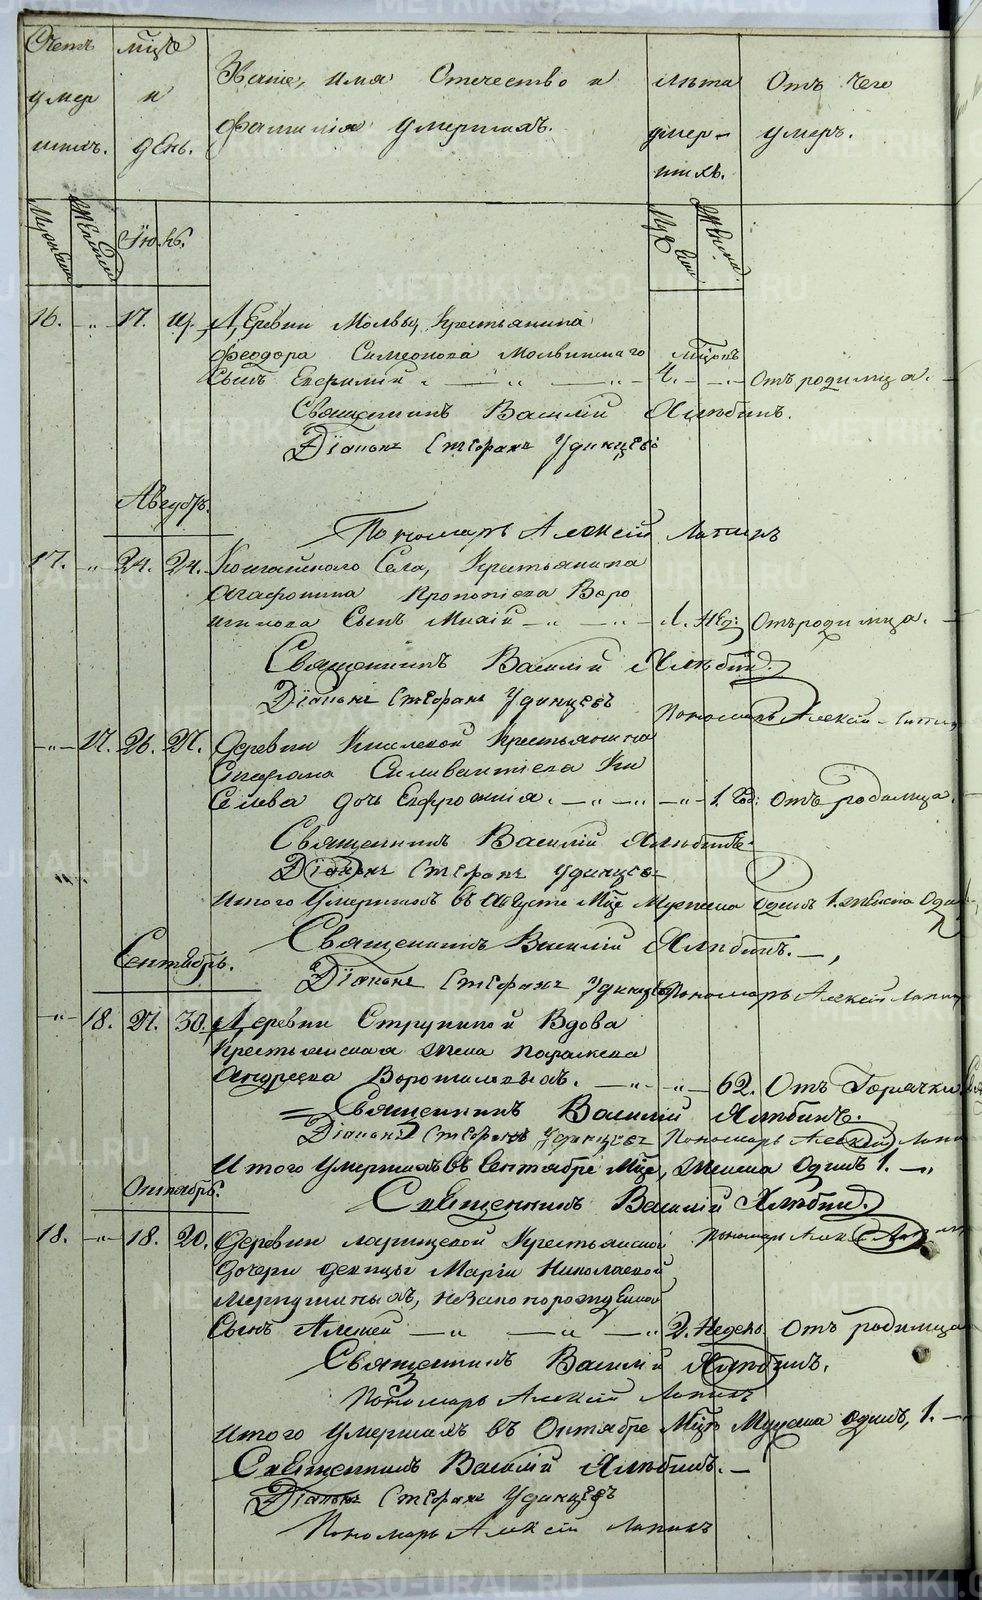 Счетъ
умер
шихъ.
мцъ
и
день.
Званіе, имя Отечество и
фамилія умершихъ.
лѣта
умер-
шихъ.
Отъ чего
умеръ.
Іюль.
16. " 17. 19. Деревни Мольвы, Крестьянина
Феодора Симеонова Мольвинскаго
сынъ Евфимій. 4. Отъ родимца.
Священникъ Василій Хлѣбинъ.
Діаконъ Стефанъ Удинцевъ
Августъ.
Пономарь Алексій Лапинъ
17. " 24. 24. Села, Крестьянина
Воро
шилова Сынъ 1. Нед: Отъ родимца.
Священникъ Василій Хлѣбинъ.
Діаконъ Стефанъ Удинцевъ
Пономарь Алексій Лапин
" 17. 26. 27. Деревни Киселевой Крестьянина
Стефана Селивантіева Ки
селева дочь Евфросинія. 1. Год: Отъ родимца.
Священникъ Василій Хлѣбинъ.
Діаконъ Стефанъ Удинцевъ
Итого умершихъ въ Августѣ Мцѣ Мужеска одинъ 1. женска одн
Священникъ Василій Хлѣбинъ.
Сентябрь.
Діаконъ Стефанъ Удинцевъ Пономарь Алексій Лапин
" 18. 27. 30. Деревни Вдова
крестьянская жена Параскева
Андреева Ворошиловыхъ. 62. Отъ Горячки
Священникъ Василій Хлѣбинъ.
Діаконъ Стефанъ Удинцевъ Пономарь Алексій Лапи
Итого умершихъ въ Сентябрѣ Мцѣ, женска одинъ 1.
Октябрь.
Священникъ Василій Хлѣбин.
Пономарь Алексій
18. " 18. 20. Деревни Крестьянской
дочери девицы Маріи Николаевой
Меркушиныхъ, незаконорожденной
Сынъ Алексей 2. Недель Отъ родимца
Священникъ Василій Хлѣбинъ.
Пономарь Алексій Лапинъ
Итого умершихъ въ Октябре Мцѣ Мужеска одинъ, 1.
Священникъ Василій Хлѣбинъ.
Діаконъ Стефанъ Удинцевъ
Пономарь Алексій Лапинъ
METRIKI.GASO-URAL.RU